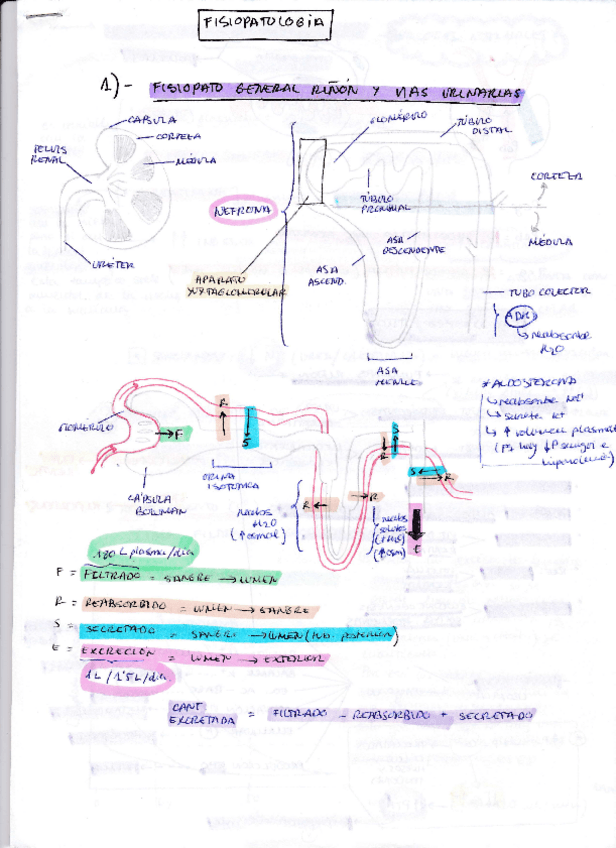 FISIOPATOLOGÍA
1)- FISIOPATO GENERAL RIÑÓN Y VIAS URINARIAS
CAPSULA
CORTEZA
MÉDULA
PELVIS
RENAL
URÉTER
NEFRONA
GLOMÉRULO
TÚBULO
DISTAL
TÚBULO
PROXIMAL
CORTEZA
MÉDULA
ASA
DESCENDENTE
ASA
ASCEND.
APARATO
YUXTAGLOMERULAR
TUBO COLECTOR
ADH
reabsorbe
H2O
ASA
HENLE
* ALDOSTERONA
reabsorbe Na+
secreta K+
↑ volumen plasmat
GLOMÉRULO
F
R
S
CÁPSULA
BOWMAN
ORINA
ISOTÓNICA
R
R
R
S
S
R
E
H2O
(↑osmol)
solutos
(↑osm)
180 L plasma/día
F = FILTRADO = SANGRE → LUMEN
R = REABSORBIDO = LUMEN → SANGRE
S = SECRETADO = SANGRE → LUMEN
E = EXCRECIÓN = LUMEN → EXTERIOR
1L/1'5L/día
CANT
EXCRETADA = FILTRADO - REABSORBIDO + SECRETADO